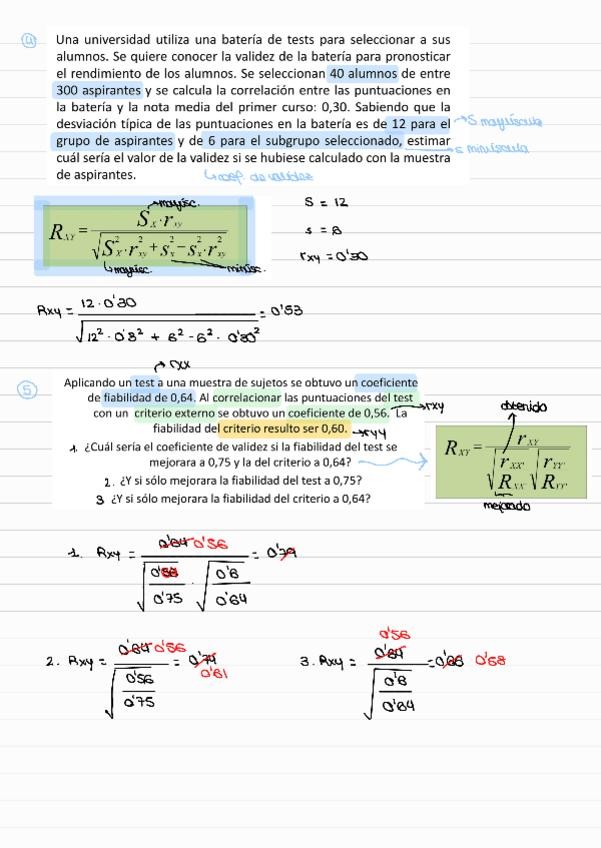 a
Una universidad utiliza una batería de tests para seleccionar a sus
alumnos. Se quiere conocer la validez de la batería para pronosticar
el rendimiento de los alumnos. Se seleccionan 40 alumnos de entre
300 aspirantes y se calcula la correlación entre las puntuaciones en
la batería y la nota media del primer curso: 0,30. Sabiendo que la
desviación típica de las puntuaciones en la batería es de 12 para el → S mayúscula
grupo de aspirantes y de 6 para el subgrupo seleccionado, estimar → s minúscula
cuál sería el valor de la validez si se hubiese calculado con la muestra
de aspirantes. ↳ coef. de validez
→ mayúsc.
R_XY = S_x · r_xy / √(S²_x · r²_xy + s²_x − s²_x · r²_xy)
↳ mayúsc. minúsc.
S = 12
s = 6
rxy = 0'30
Rxy = 12 · 0'30 / √(12² · 0'3² + 6² - 6² · 0'30²) = 0'53
→ rxx
5
Aplicando un test a una muestra de sujetos se obtuvo un coeficiente
de fiabilidad de 0,64. Al correlacionar las puntuaciones del test
con un criterio externo se obtuvo un coeficiente de 0,56. La → rxy
fiabilidad del criterio resulto ser 0,60. → ryy
1. ¿Cuál sería el coeficiente de validez si la fiabilidad del test se
mejorara a 0,75 y la del criterio a 0,64? →
2. ¿Y si sólo mejorara la fiabilidad del test a 0,75?
3 ¿Y si sólo mejorara la fiabilidad del criterio a 0,64?
obtenido
R_XY = r_XY / (√(r_XX' / R_XX') √(r_YY' / R_YY'))
mejorado
1. Rxy = 0'64 0'56 / (√(0'56 / 0'75) · √(0'6 / 0'64)) = 0'79
2. Rxy = 0'64 0'56 / √(0'56 / 0'75) = 0'74
0'61
0'56
3. Rxy = 0'64 / √(0'6 / 0'64) = 0'66 0'58